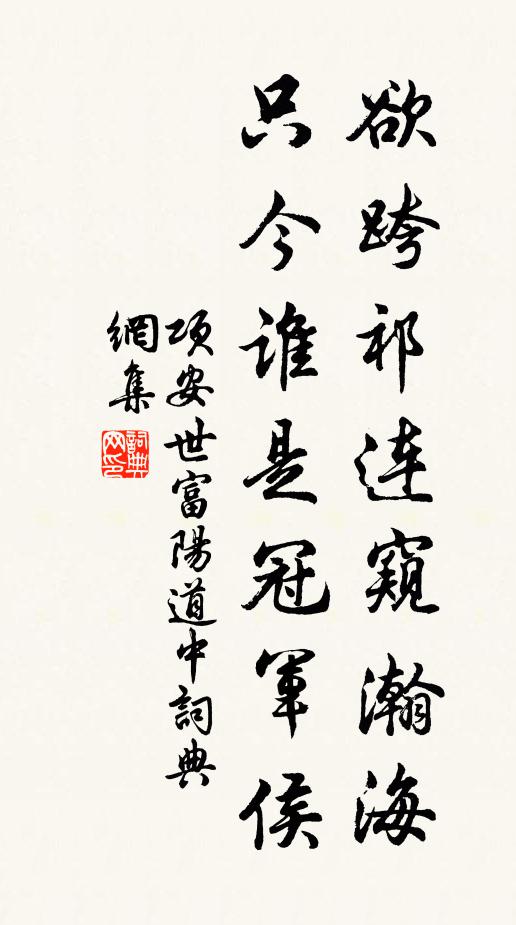 欲跨祁連窺瀚海
只今誰是冠軍侯
項安世富陽道中詞典
網集
詞典網印